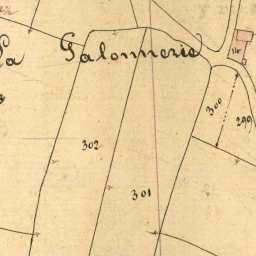 La Galonnerie
300
299
302
301